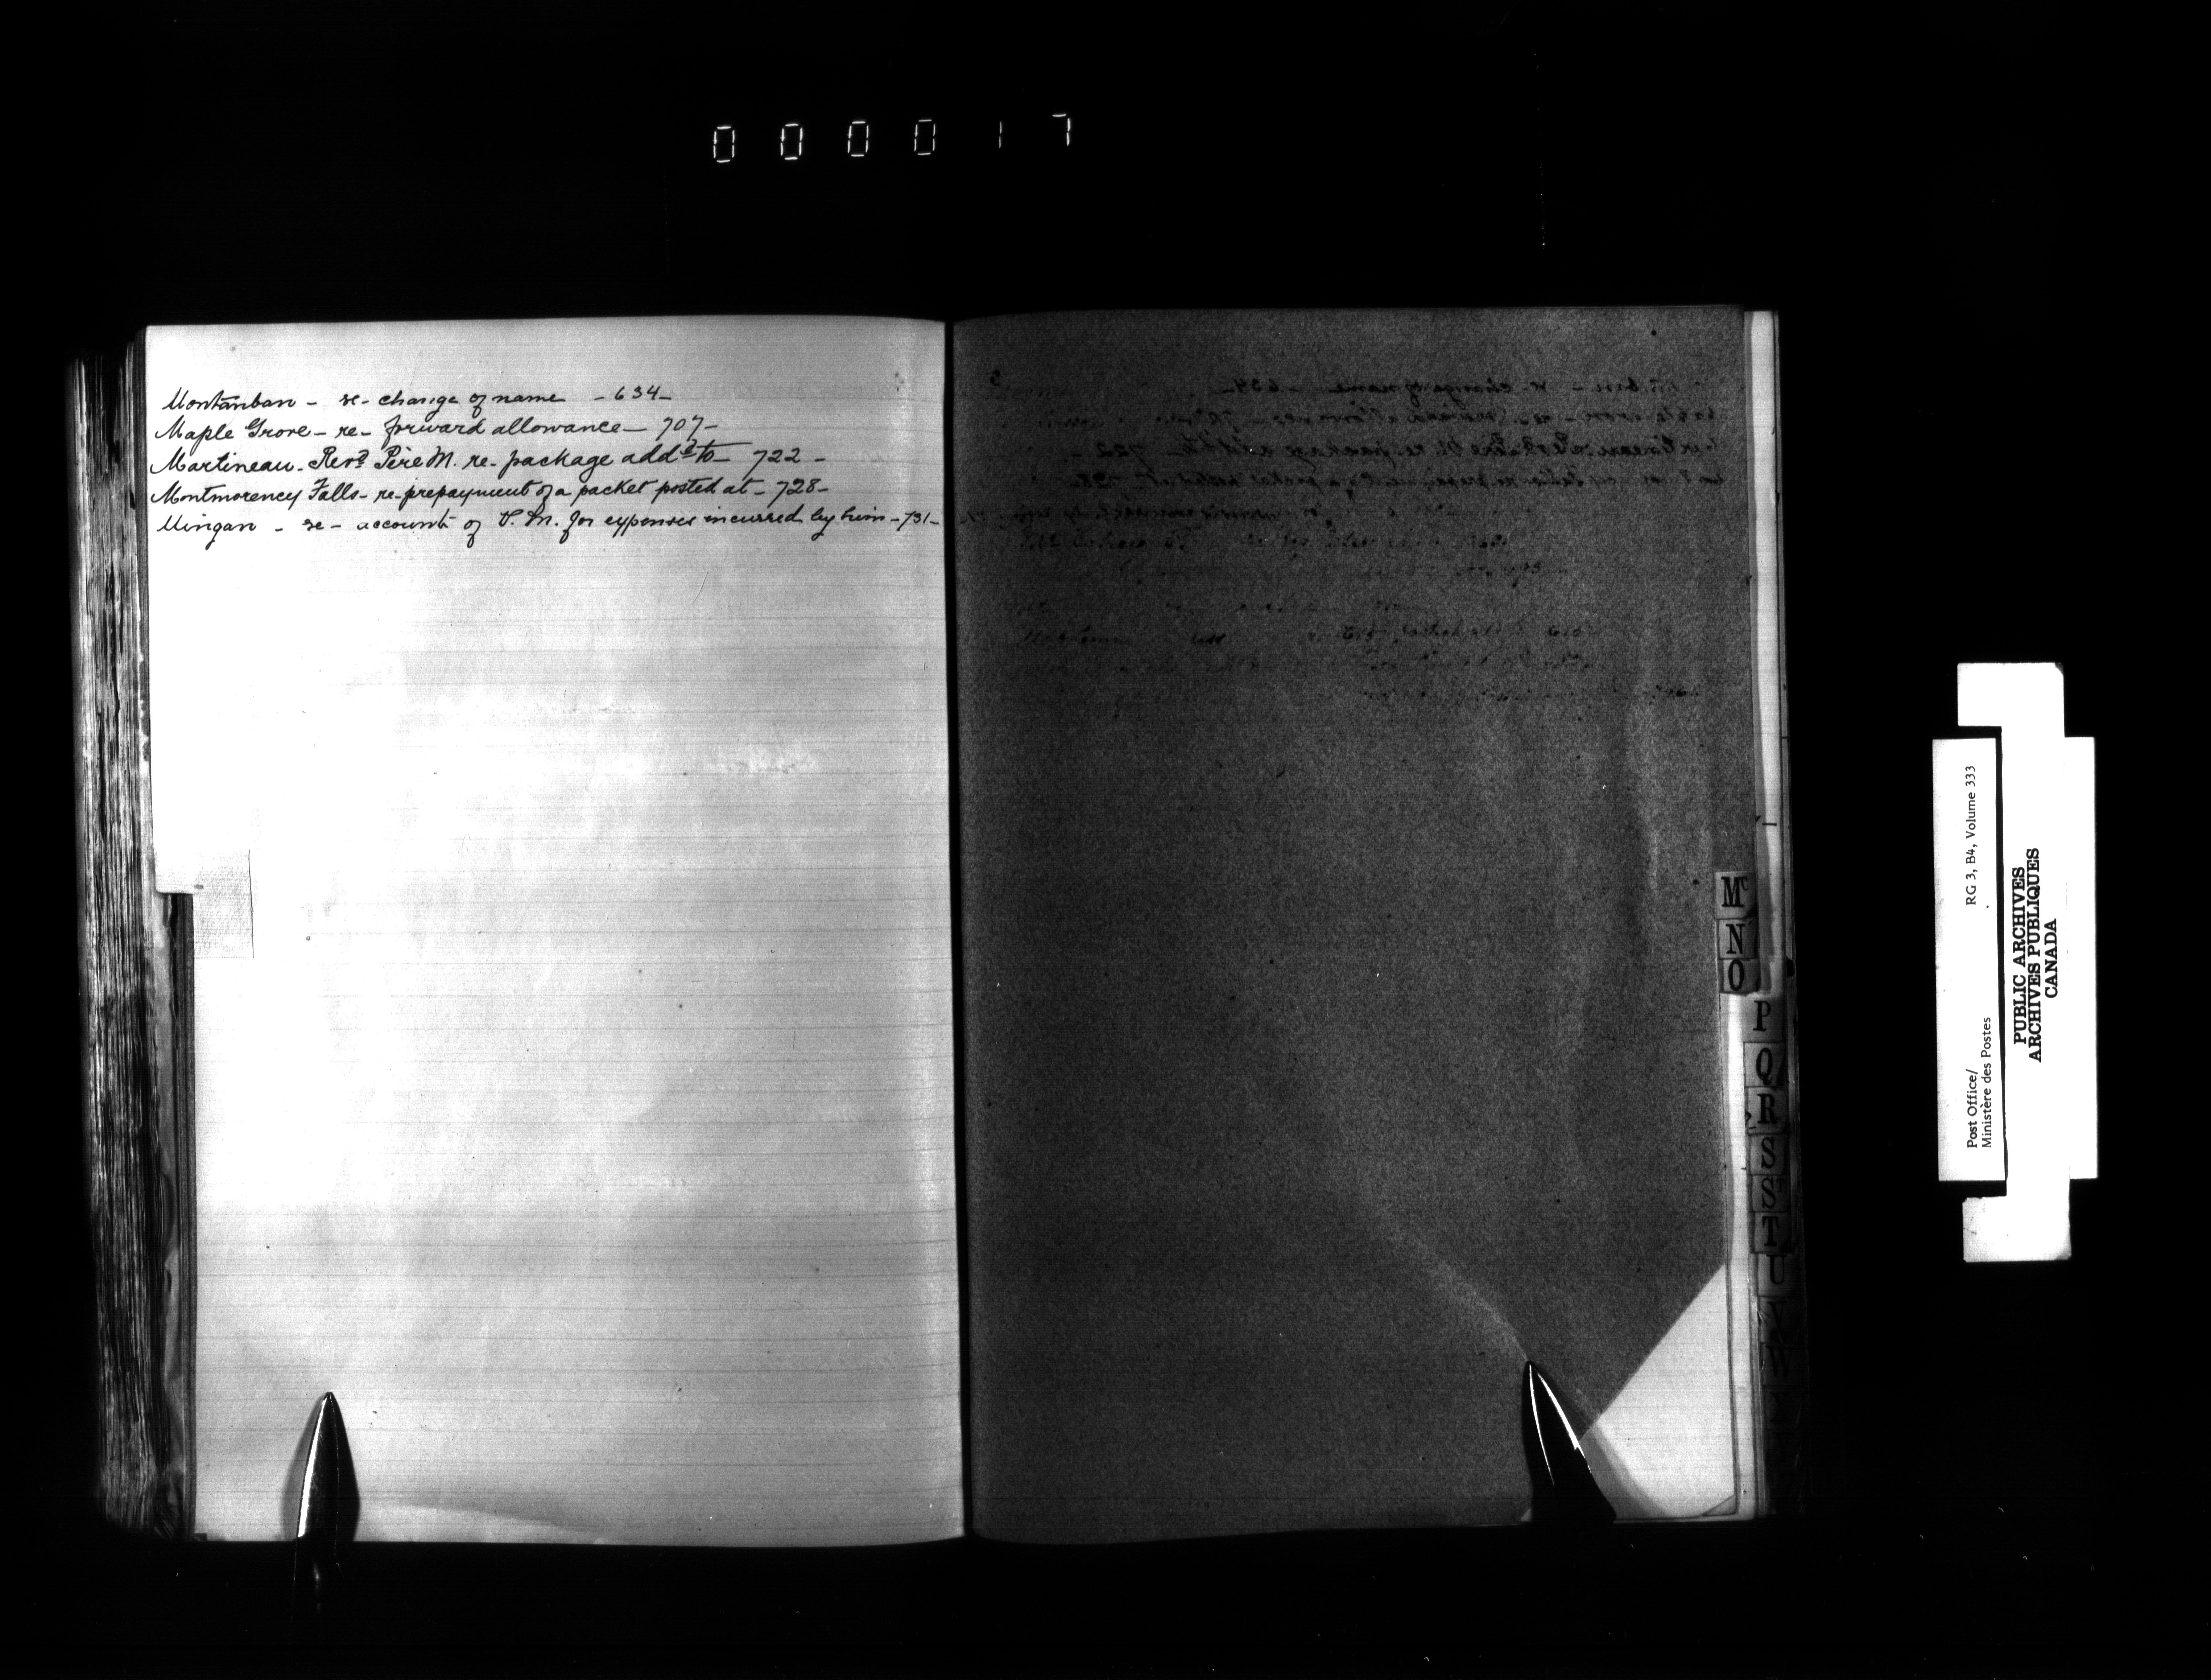 000017
Montanban - re - change of name - 634 -
Maple Grove - re - forward allowance - 707 -
Martineau - Revd Père M. re - package addd to - 722 -
Montmorency Falls - re - prepayment of a packet posted at - 728 -
Mingan - re - account of P. M. for expenses incurred by him - 731 -
Mc
N
O
P
Q
R
S
ST
T
U
V
W
Post Office/
Ministère des Postes
RG 3, B4, Volume 333
PUBLIC ARCHIVES
ARCHIVES PUBLIQUES
CANADA